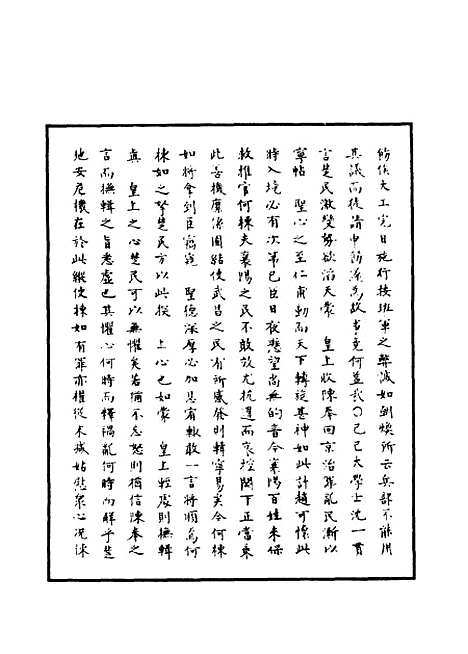 飭俟大工完日施行按班軍之弊誠如劉煥所云兵部不能用
其議而後請申飭涤為故事竟何益哉○己巳大學士沈一貫
言楚民激變勢欲滔天蒙　皇上收陳奉回京治罪亂民漸以
寧帖　聖心之至仁甫動而天下轉旋甚神如此計趙可懷此
時入境必有次第已臣日夜懸望尚無的音今襄陽百姓來保
救推官何棟夫襄陽之民不敢放尤抗違而哀控闕下正當乘
此善機廉係固結使武昌之民有所感發則轉寧易矣今何棟
如將拿到臣竊窺　聖德深厚必加恩宥輒敢一言將順為何
棟如之拏楚民方以此從　上心也如蒙　皇上輕處則撫輯
真　皇上之心楚民可以無懼矣若猶不忘怒則猶信陳奉之
言而撫輯之旨悉虛也其懼心何時而釋禍亂何時而解乎楚
地安危機在於此縱使棟如有罪亦權從末減姑慰衆心況俫